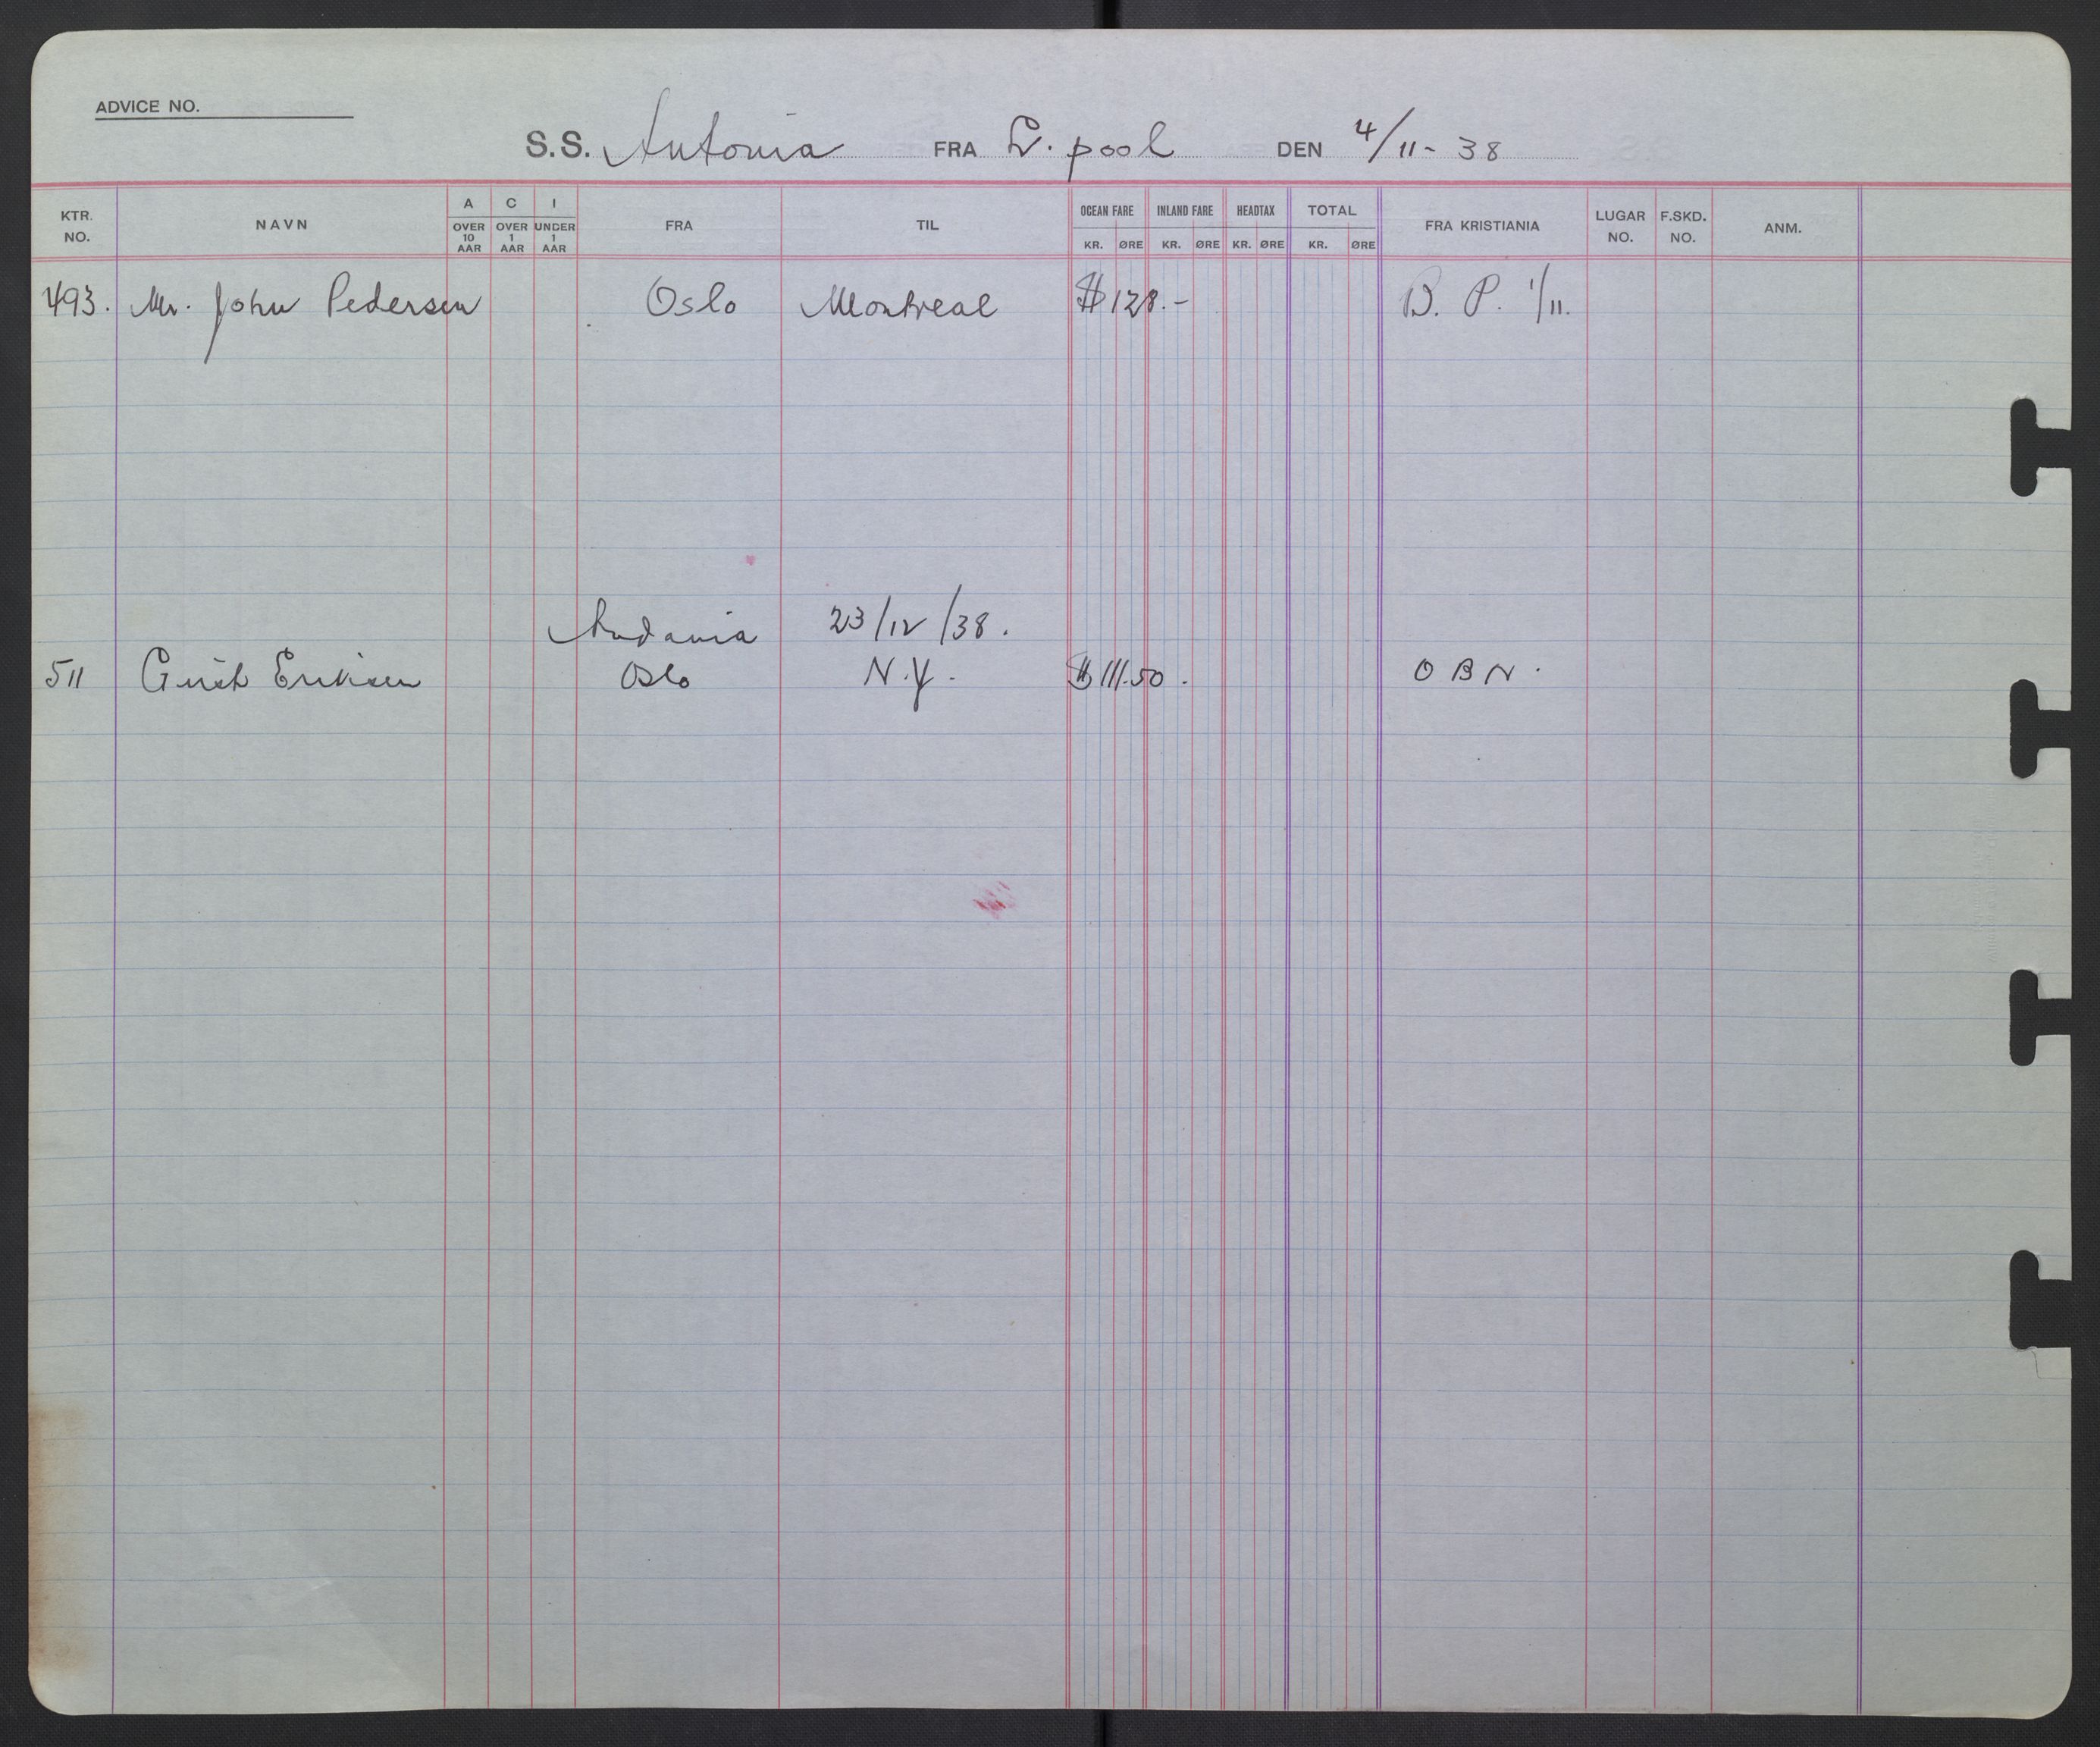 ADVICE NO.
S.S. Antonia FRA L.pool DEN 4/11-38
KTR. NO. NAVN A OVER 10 AAR C OVER 1 AAR I UNDER 1 AAR FRA TIL OCEAN FARE KR. ØRE INLAND FARE KR. ØRE HEADTAX KR. ØRE TOTAL KR. ØRE FRA KRISTIANIA LUGAR NO. F.SKD. NO. ANM.
493. Mr. John Pedersen Oslo Montreal $128.- B. P. 1/11.
Andania 23/12/38.
511 Eriksen Oslo N.Y. $111.50. O B N.